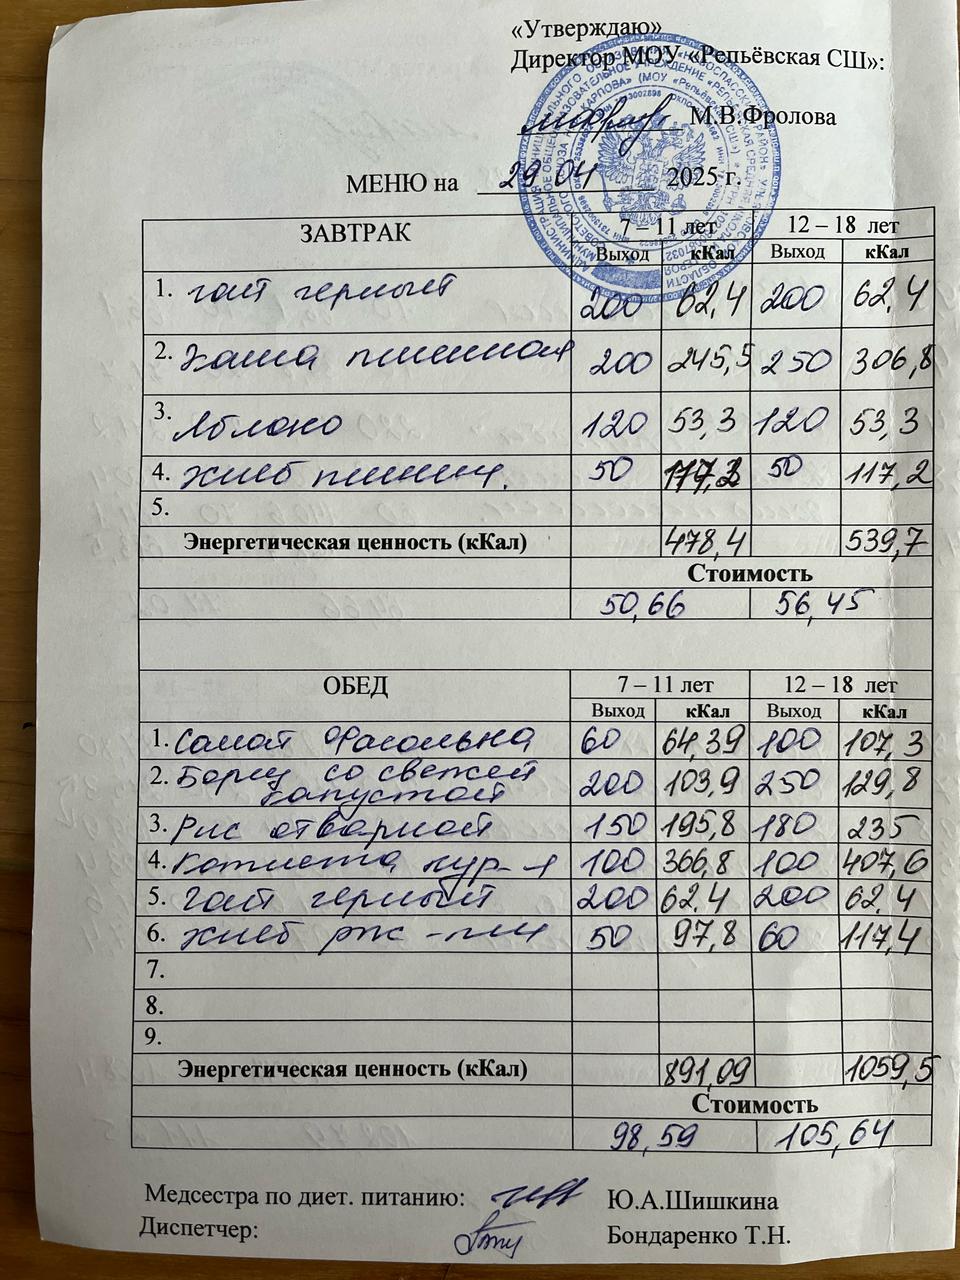 «Утверждаю»
Директор МОУ «Репьёвская СШ»:
М.В.Фролова
МЕНЮ на 29 04 2025 г.
ЗАВТРАК 7 – 11 лет 12 – 18 лет
Выход кКал Выход кКал
1. чай черный 200 62,4 200 62,4
2. Каша пшенная 200 245,5 250 306,8
3. Яблоко 120 53,3 120 53,3
4. Хлеб пшенич. 50 117,2 50 117,2
5.
Энергетическая ценность (кКал) 478,4 539,7
Стоимость
50,66 56,45
ОБЕД 7 – 11 лет 12 – 18 лет
Выход кКал Выход кКал
1. Салат Фасольна 60 64,39 100 107,3
2. Борщ со свежей 200 103,9 250 129,8
капустой
3. Рис отварной 150 195,8 180 235
4. Котлета кур-я 100 366,8 100 407,6
5. Чай черный 200 62,4 200 62,4
6. Хлеб рж-пш 50 97,8 60 117,4
7.
8.
9.
Энергетическая ценность (кКал) 891,09 1059,5
Стоимость
98,59 105,64
Медсестра по диет. питанию: Ю.А.Шишкина
Диспетчер: Бондаренко Т.Н.